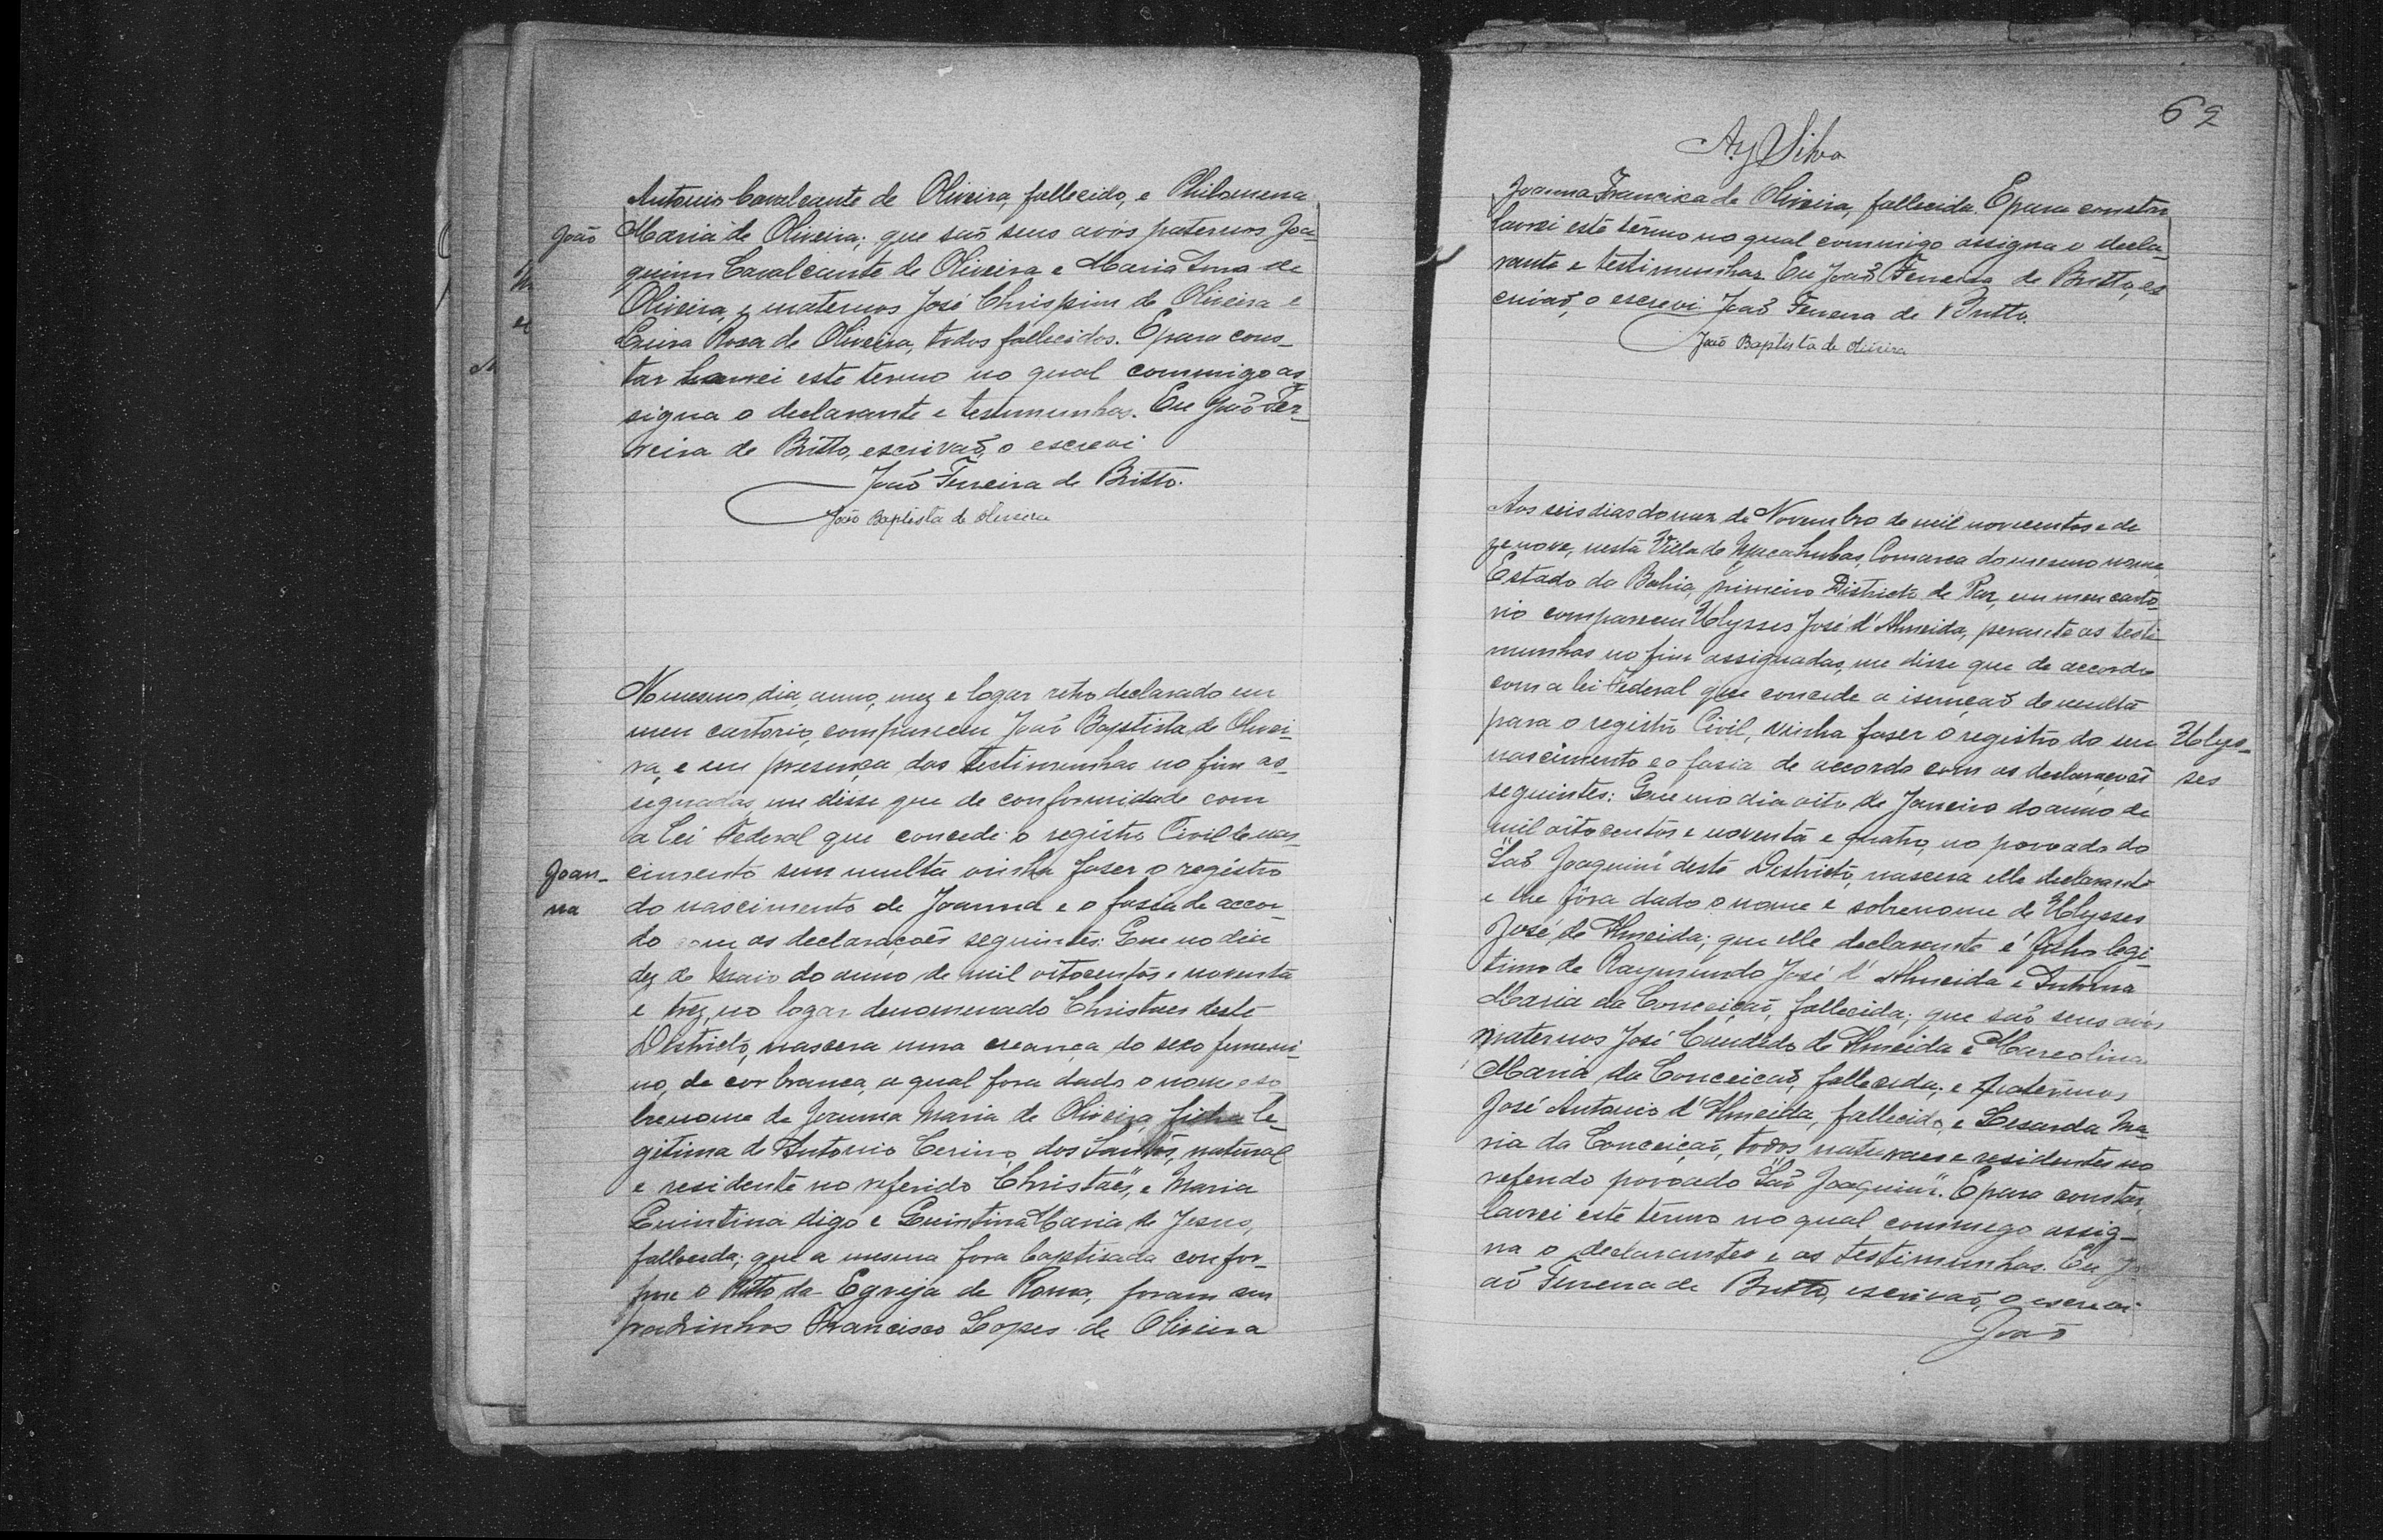 Antonio Cavalcante de Oliveira, fallecido, e Philomena
João
Maria de Oliveira; que saõ seus avós paternos Joa-
quim Cavalcante de Oliveira e Maria de
Oliveira, e maternos José Chrispim de Oliveira e
Rosa de Oliveira, todos fallecidos. E para cons-
tar lavrei este termo no qual commigo as-
signa o declarante e testemunhas. Eu João Fer-
reira de Britto, escrivaõ, o escrevi
João Ferreira de Britto.
João Baptista de Oliveira
No mesmo dia, anno, mez e logar retro declarado em
meu cartorio, compareceu João Baptista de Olivei-
ra, e em presença das testimunhas no fim as-
signadas me disse que de conformidade com
a Lei Federal que concede o registro Civil de nas-
Joan-
na
cimento sem multa vinha faser o registro
do nascimento de Joanna e o fasia de accor-
do com as declaraçoẽs seguintes: Que no dia
dez de Maio do anno de mil oitocentos e noventa
e trez, no logar denomenado Christaes deste
Districto, nascera uma creança do sexo femeni-
no, de cor branca, a qual fora dado o nome e so
brenome de Joanna Maria de Oliveira, filha le-
gitima de Antonio Cerino dos Santos, natural
e residente no referido Christaẽs, e Maria
Quintina digo e Quintina Maria de Jesus,
fallecida; que a mesma fora baptisada confor-
me o Ritto da Egreja de Roma, foram seu
padrinhos Francisco Lopes de Oliveira
62
Ay Silva
Joanna Francisca de Oliveira, fallecida. E para constar
lavrei este termo no qual commigo assigna o decla-
rante e testimunhas. Eu João Ferreira de Britto, es
crivaõ, o escrevi João Ferreira de Britto.
João Baptista de Oliveira
Aos seis dias do mez de Novembro de mil novecentos e de
zenove, nesta Villa de Macahubas, Comarca do mesmo nome,
Estado da Bahia, primeiro Districto de Paz, em meu carto-
rio compareceu Ulysses José d'Almeida, perante as testi-
munhas no fim assignadas, me disse que de accordo
com a lei Federal que concede a isençaõ de multa
para o registro Civil, vinha faser o registro do seu
Ulys-
ses
nascimento e o fasia de accordo com as declaraçoẽs
seguintes: Que no dia oito de Janeiro do anno de
mil oitocentos e noventa e quatro, no povoado do
"Saõ Joaquim" deste Districto, nascera elle declarante
e lhe fôra dado o nome e sobrenome de Ulysses
José de Almeida; que elle declarante é filho legi-
timo de Raymundo José d'Almeida e Antonia
Maria da Conceiçaõ, fallecida; que saõ seus avós
maternos José Candido de Almeida e Marcolina
Maria da Conceiçaõ, fallecida; e paternos
José Antonio d'Almeida, fallecido, e Lesarda Ma-
ria da Conceiçaõ, todos naturaes e residentes no
referido povoado "Saõ Joaquim". E para constar,
lavrei este termo no qual commego assig-
na o declarantes e as testimunhas. Eu Jo
aõ Ferreira de Britto, escrivaõ, o escrevi
João